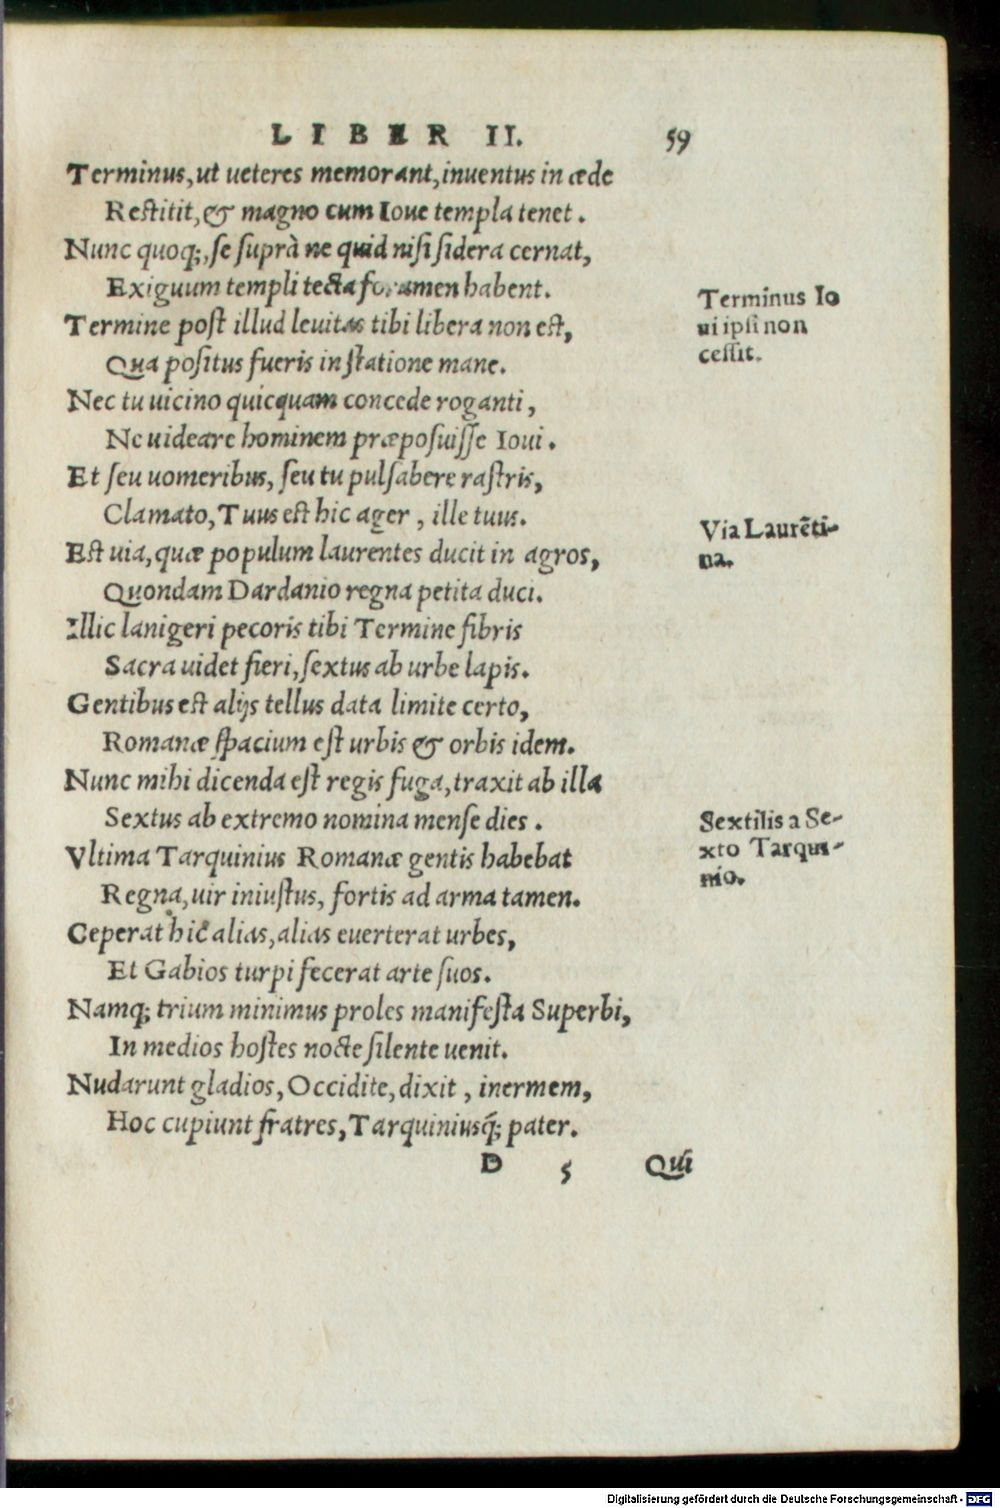 LIBER II. 59
Terminus, ut ueteres memorant, inuentus in æde
Restitit, & magno cum Ioue templa tenet.
Nunc quoq;, se suprà ne quid nisi sidera cernat,
Exiguum templi tecta foramen habent.
Termine post illud leuitas tibi libera non est,
Qua positus fueris in statione mane.
Nec tu uicino quicquam concede roganti,
Ne uideare hominem præposuisse Ioui.
Et seu uomeribus, seu tu pulsabere rastris,
Clamato, Tuus est hic ager, ille tuus.
Est uia, quæ populum laurentes ducit in agros,
Quondam Dardanio regna petita duci.
Illic lanigeri pecoris tibi Termine fibris
Sacra uidet fieri, sextus ab urbe lapis.
Gentibus est alijs tellus data limite certo,
Romanæ spacium est urbis & orbis idem.
Nunc mihi dicenda est regis fuga, traxit ab illa
Sextus ab extremo nomina mense dies.
Vltima Tarquinius Romanæ gentis habebat
Regna, uir iniustus, fortis ad arma tamen.
Ceperat hic alias, alias euerterat urbes,
Et Gabios turpi fecerat arte suos.
Namq; trium minimus proles manifesta Superbi,
In medios hostes nocte silente uenit.
Nudarunt gladios, Occidite, dixit, inermem,
Hoc cupiunt fratres, Tarquiniusq́; pater.
D 5 Qui
Terminus Io
ui ipsi non
cessit.
Via Laurẽti-
na.
Sextilis a Se-
xto Tarqui-
nio.
Digitalisierung gefördert durch die Deutsche Forschungsgemeinschaft - DFG